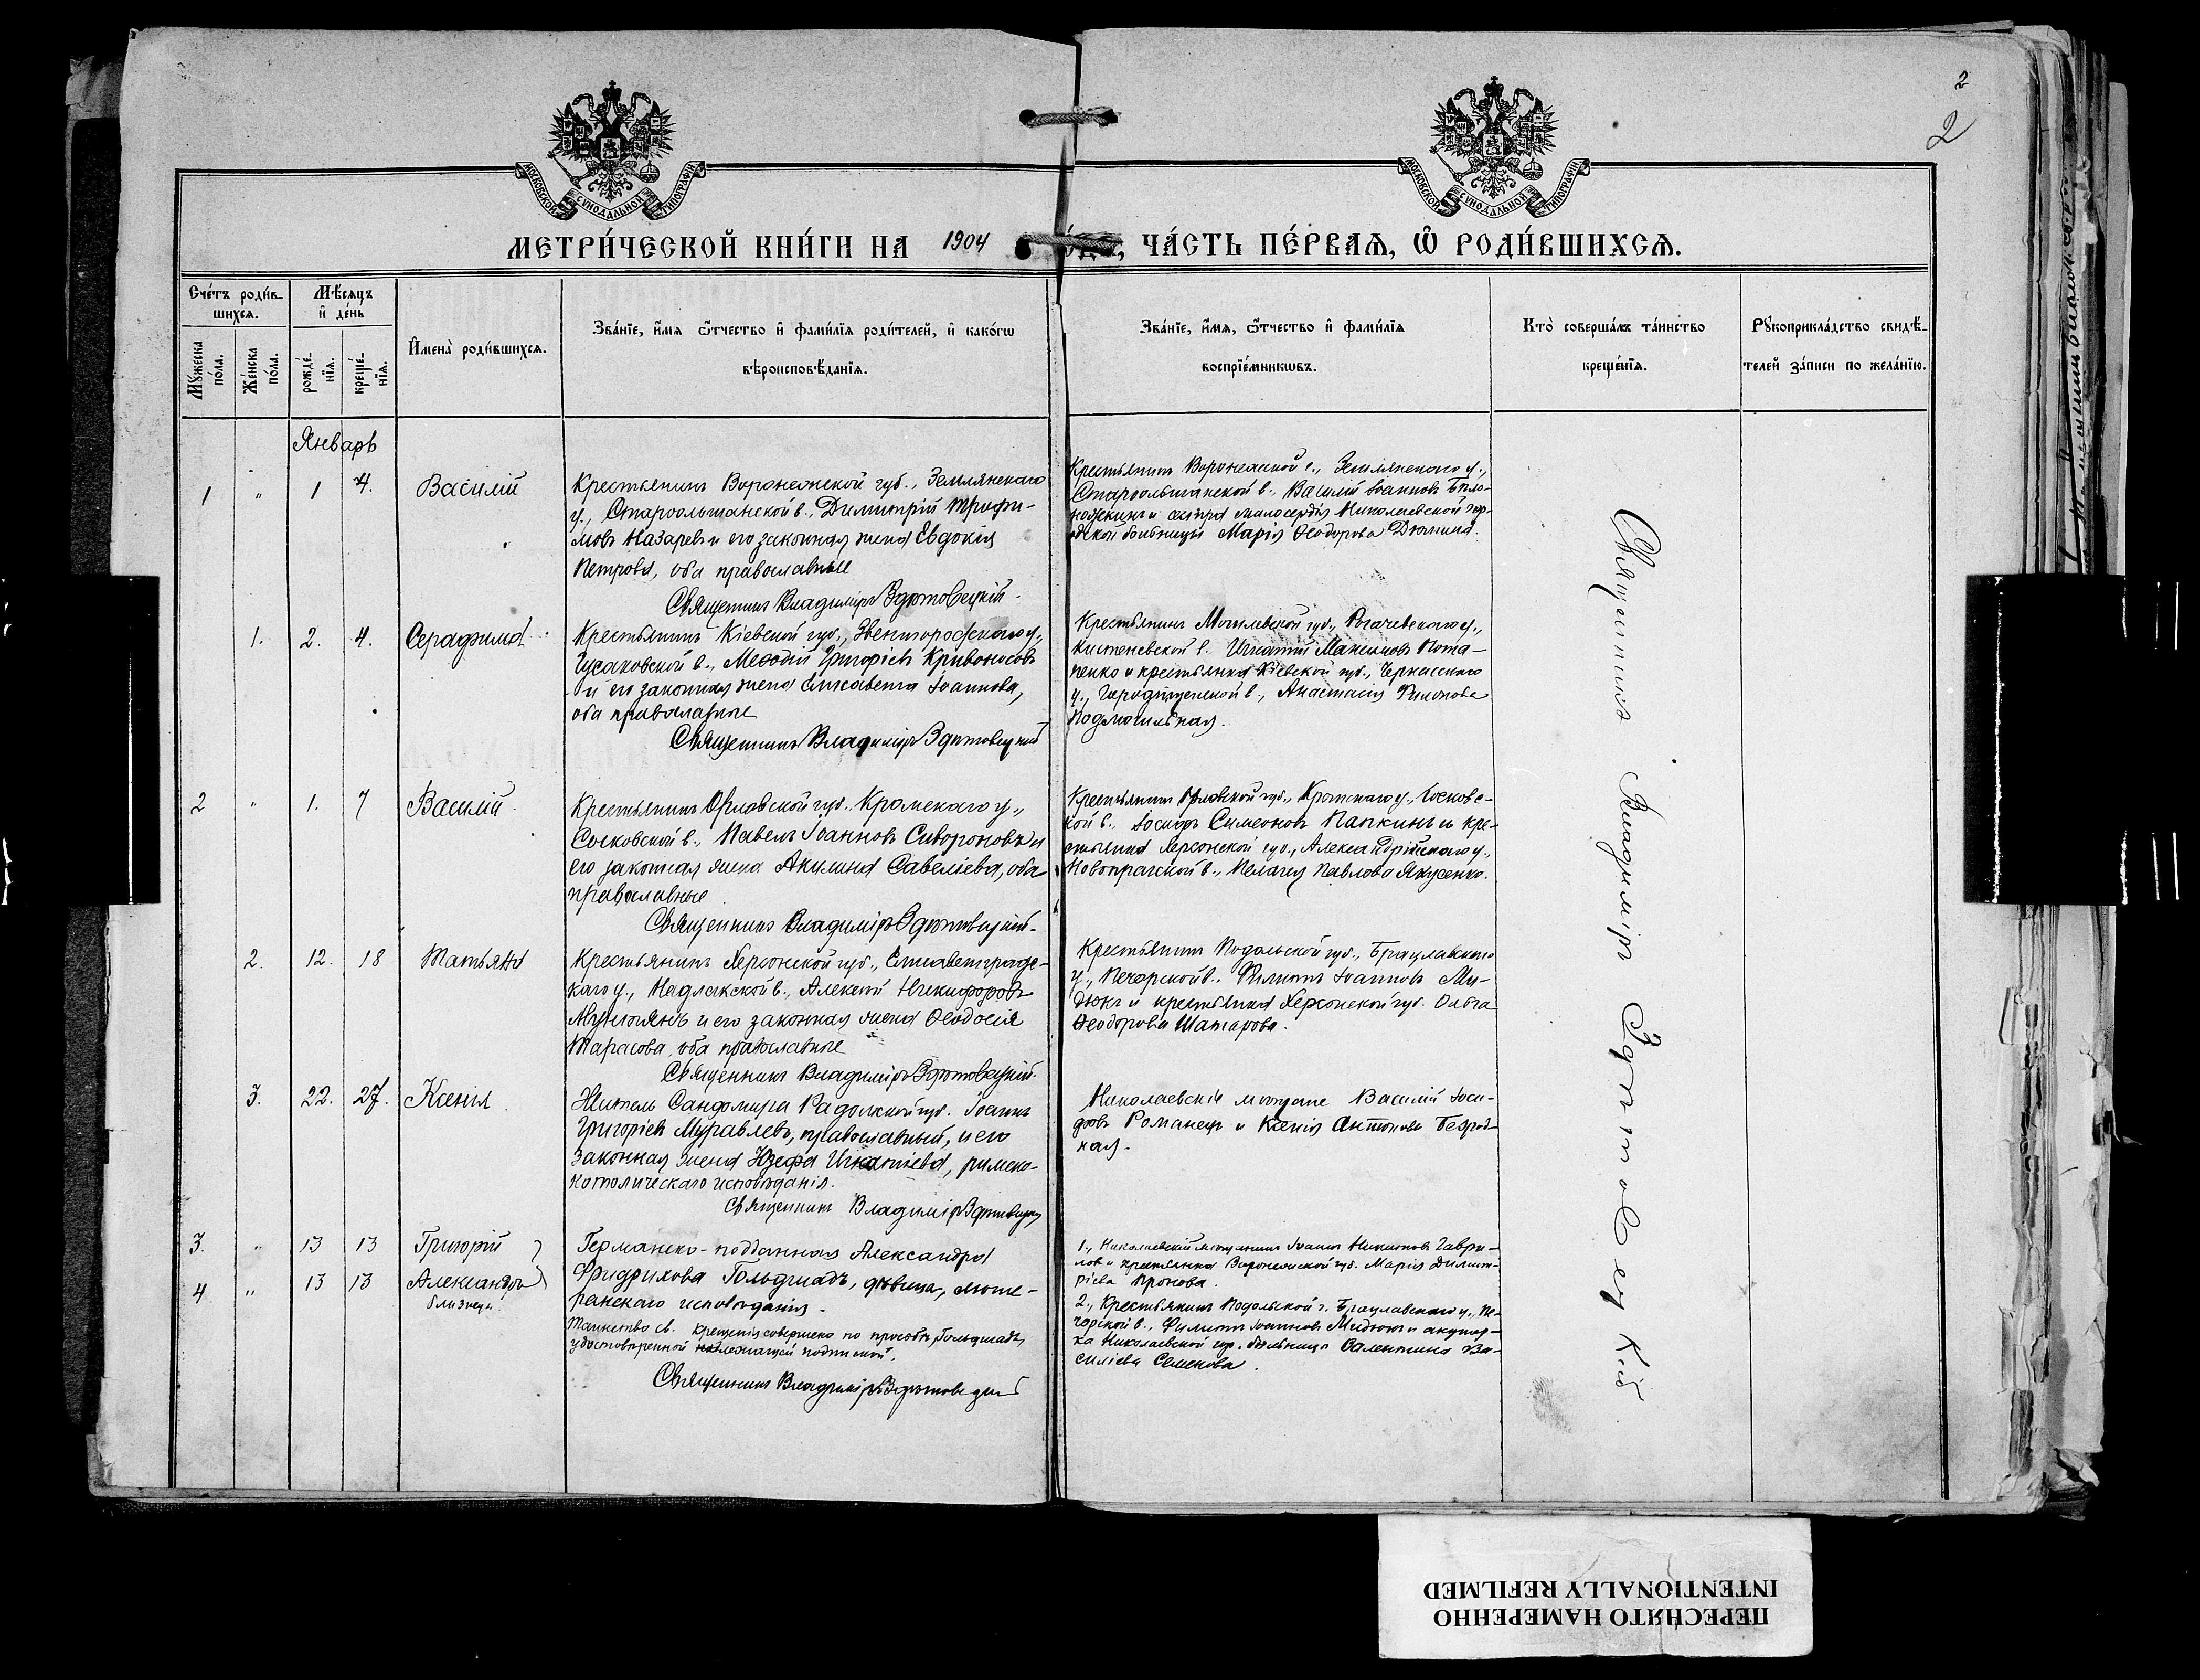 2
2
МОСКОВСКОЙ СѴНОДАЛЬНОЙ ТИПОГРАФІИ
МОСКОВСКОЙ СѴНОДАЛЬНОЙ ТИПОГРАФІИ
МЕТРИ́ЧЕСКОЙ КНИ́ГИ НА 1904
ЧА́СТЬ ПЕ́РВАЯ, Ѡ҆ РОДИ́ВШИХСЯ.
Сче́тъ роди́в-
шихся.
Му́жеска по́ла.
Же́нска по́ла.
Мѣ́сяцъ
и҆ де́нь
рожде́-
нїя.
креще́-
нїя.
И҆мена̀ роди́вшихся.
Зва́нїе, и҆́мя ѻ҆́тчество и҆ фами́лїя роди́телей, и҆ како́гѡ
вѣроисповѣ́данїя.
Зва́нїе, и҆́мя, ѻ҆́тчество и҆ фами́лїя
воспрїе́мникѡвъ.
Кто̀ соверша́лъ та́инство
креще́нїя.
Рꙋкоприкла́дство свидѣ́-
телей за́писи по жела́нїю.
Январь
1 " 1 4. Василій
Крестьянинъ Воронежской губ., Землянскаго
у., Староольшанской в., Димитрій Трофи-
мовъ Назаревъ и его законная жена Евдокія
Петрова, оба православные
Священникъ Владиміръ Здѣтовецкій.
Крестьянинъ Воронежской г., Землянскаго у.,
Староольшанской в., Василій Іоанновъ Бѣло-
кожкинъ и сестра милосердія Николаевской гор-
одской больницы Марія Ѳеодорова Дюмина.
1. 2. 4. Серафима
Крестьянинъ Кіевской губ., Звенигородскаго у.,
Гусаковской в., Меѳодій Григорьевъ Кривоносовъ
и его законная жена Елисавета Іоаннова,
оба православные
Священникъ Владиміръ Здѣтовецкій
Крестьянинъ Могилевской губ., Рогачевскаго у.,
Кистеневской в. Игнатій Максимовъ Пота-
пенко и крестьянка Кіевской губ., Черкасскаго
у., Городищенской в., Анастасія Филонова
Подмогильная.
2 " 1. 7 Василій
Крестьянинъ Орловской губ., Кромскаго у.,
Сосковской в., Павелъ Іоанновъ Сивороновъ и
его законная жена Акилина Савеліева, оба
православные
Священникъ Владиміръ Здѣтовецкій.
Крестьянинъ Орловской губ., Кромскаго у., Сосковс-
кой в., Іосифъ Симеоновъ Папкинъ и кре-
стьянка Херсонской губ., Александрійскаго у.,
Новопрагской в., Пелагея Павлова Якусенко.
2. 12. 18 Татьяна
Крестьянинъ Херсонской губ., Елисаветградс-
каго у., Надлакской в., Алексѣй Никифоровъ
Мунтянъ и его законная жена Ѳеодосія
Тарасова, оба православные
Священникъ Владиміръ Здѣтовецкій.
Крестьянинъ Подольской губ., Брацлавскаго
у., Печорской в., Филиппъ Іоанновъ Ми-
дюкъ и крестьянка Херсонской губ. Ольга
Ѳеодорова Шатарова.
3. 22. 27. Ксенія
Житель Сандомира Радомской губ. Іоаннъ
Григорьевъ Муравлевъ, православный, и его
законная жена Юзефа Игнатіева, римско-
католическаго исповѣданія.
Священникъ Владиміръ Здѣтовецкій
Николаевскіе мѣщане Василій Іоси-
фовъ Романецъ и Ксенія Антонова Безрод-
ная.
3. " 13 13 Григорій
4 " 13 13 Александръ
близнецы
Германско-подданная Александра
Фридрихова Гольдшадъ, дѣвица, люте-
ранскаго исповѣданія.
Таинство св. крещенія совершено по просьбѣ Гольдшадъ,
удостовѣренной надлежащей подпиской.
Священникъ Владиміръ Здѣтовецкій
1., Николаевскій мѣщанинъ Іоаннъ Никитовъ Гаври-
ловъ и крестьянка Воронежской губ. Марія Димит-
ріева Пронова.
2., Крестьянинъ Подольской г. Брацлавскаго у., Пе-
чорской в., Филиппъ Іоанновъ Мидюкъ и акушер-
ка Николаевской гор. больницы Валентина Ва-
силіева Семенова.
Священникъ Владиміръ Здѣтовецкій
ПЕРЕСНЯТО НАМЕРЕННО
INTENTIONALLY REFILMED